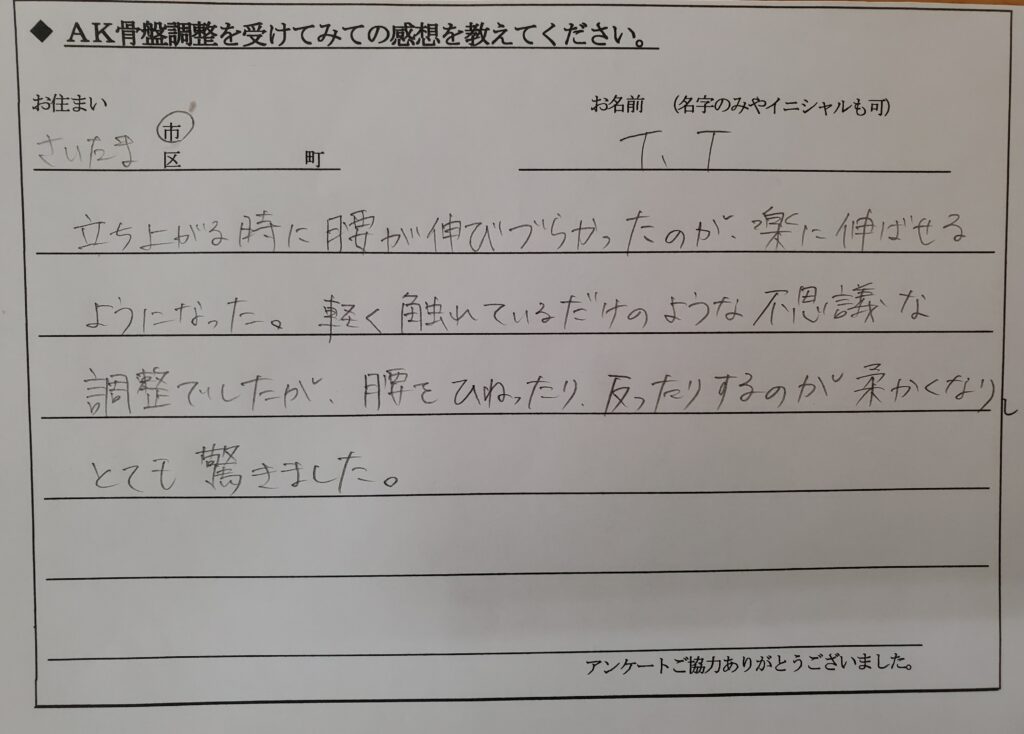 ◆ ＡＫ骨盤調整を受けてみての感想を教えてください。
お住まい
お名前　（名字のみやイニシャルも可）
さいたま 市 区 町
T、T
立ち上がる時に腰が伸びづらかったのが、楽に伸ばせる
ようになった。軽く触れているだけのような不思議な
調整でしたが、腰をひねったり、反ったりするのが柔かくなり、
とても驚きました。
アンケートご協力ありがとうございました。